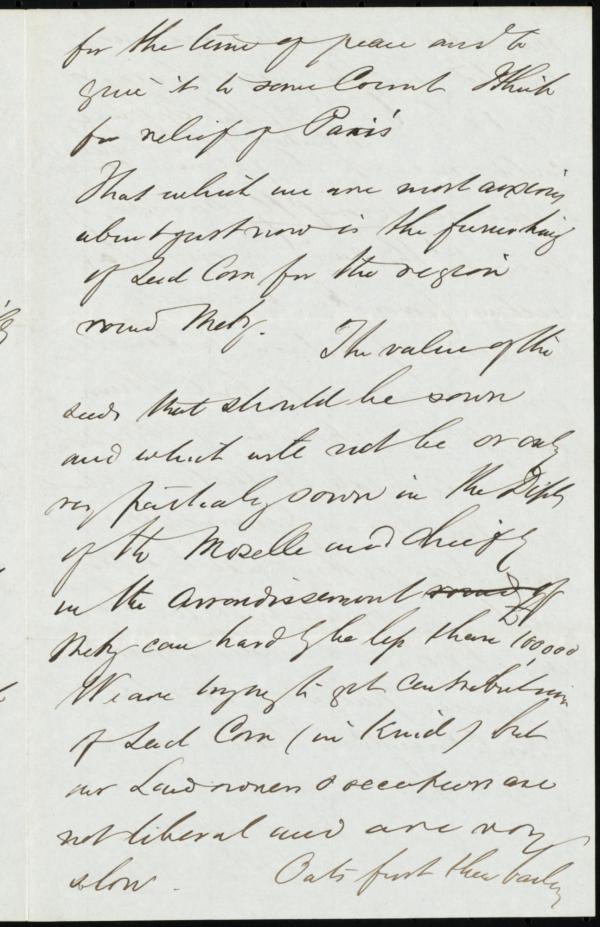 for the time of peace and to
give it to some Comt I think
for relief of Paris
That which we are most anxious
about just now is the furnishing
of Seed Corn for the region
round Metz. The value of the
seeds that should be sown
and which will not be or only
very partially sown in the Dept
of the Moselle and chiefly
in the Arrondissement round of
Metz can hardly be less than £100,000
We are trying to get contributions
of Seed Corn (in Kind) but
our Landowners & are
not liberal and are very
slow. Oats first then barley